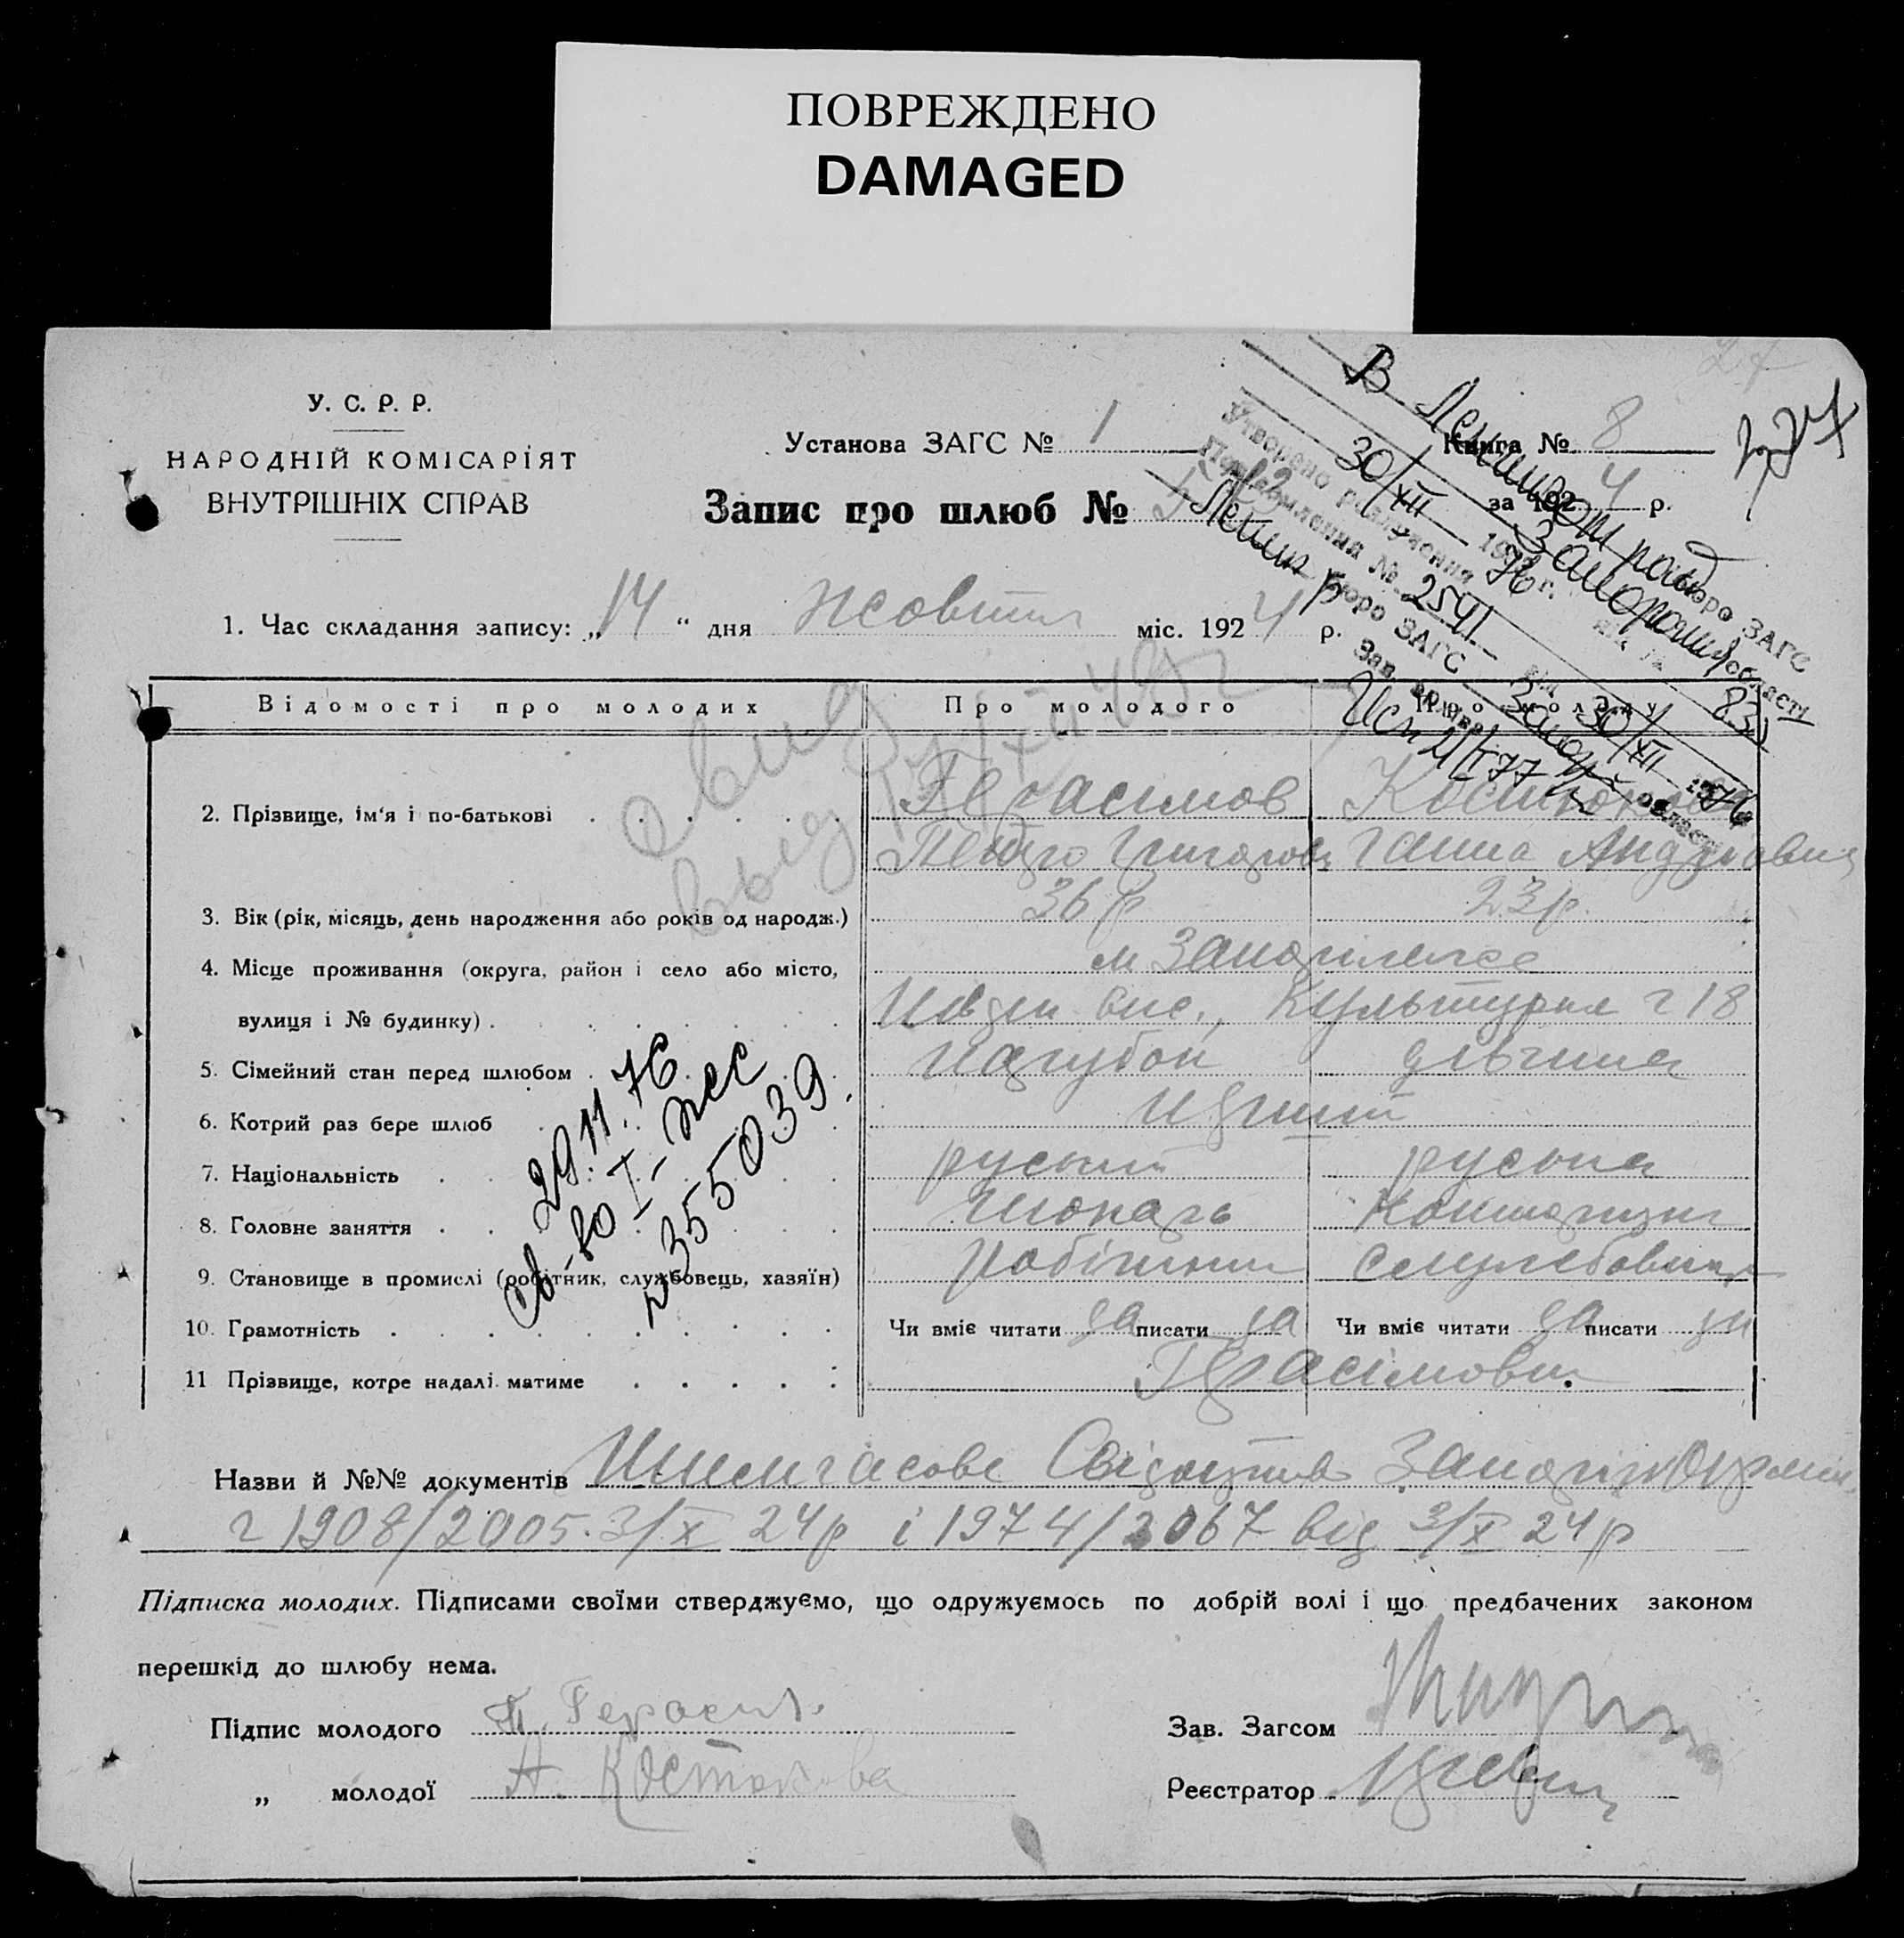 ПОВРЕЖДЕНО
DAMAGED
У. С. Р. Р.
НАРОДНІЙ КОМІСАРІЯТ
ВНУТРІШНІХ СПРАВ
Установа ЗАГС № 1
Книга № 8
за 1924 р.
Запис про шлюб №
В Ленинск райбюро ЗАГС
Запорошк області
Утворено розлучення
30/XII 1976 г.
Повідомлення № 2541 від 30/XII 1976
Ленин р бюро ЗАГС Запор області
Зав. архіва
Исп 21/I 77
1. Час складання запису: „14“ дня жовтня міс. 1924 р.
Відомості про молодих
Про молодого
Про молоду
2. Прізвище, ім'я і по-батькові
Герасимов
Петро Григоров
Костюкова
Ганна Андріовна
3. Вік (рік, місяць, день народження або років од народж.) 36 р 23 р.
4. Місце проживання (округа, район і село або місто, м Запоріжжє
вулиця і № будинку) Півден вис., Культурна 18
5. Сімейний стан перед шлюбом парубок дівчина
6. Котрий раз бере шлюб перший
7. Національність руський руська
8. Головне заняття
9. Становище в промислі (робітник, службовець, хазяїн) робітник службовиця
10. Грамотність Чи вміє читати да писати да Чи вміє читати да писати да
11 Прізвище, котре надалі матиме Герасімови.
29.11.76
св-во I-жс
№355039.
Назви й №№ документів Тимчасове Свідоцтво Запоріж Окрміл.
ч 1908/2005. 3/X 24р і 1974/2067 від 3/X 24р
Підписка молодих. Підписами своїми стверджуємо, що одружуємось по добрій волі і що предбачених законом
перешкід до шлюбу нема.
Підпис молодого П. Герасим.
„ молодої А. Костюкова
Зав. Загсом
Реєстратор